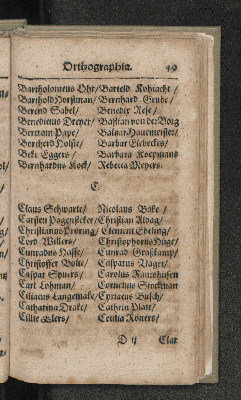 Orthographia. 49
Bartholomeus Ohr/ Barteld Kohlacht/
Barthold Horstman/ Bernhard Grube/
Berend Sabel/ Benedix Rese/
Benedictus Dreyer/ Bastian von der Borg
Bertram Paye/ Baltzar Hanemeister/
Borcherd Nolste/ Barbar Liebeckes/
Beke Eggers/ Barbara Koopmans
Bernhardus Kock/ Rebecca Meyers.
C.
Claus Schwarte/ Nicolaus Bake/
Carsten Pagensteker/ Christian Aldag/
Christianus Pröring/ Clement Ebeling/
Cord Willers/ Christophorus Hüge/
Cunradus Nasse/ Cunrad Graßkamp/
Christoffer Bolte/ Casparus Vaget/
Caspar Sprirs/ Carolus Rantzhusen
Carl Lohman/ Cornelius Stockman
Ciliacus Langemake/ Cyriacus Busch/
Catharina Drake/ Cathrin Platt/
Cillie Elers/ Cecilia Roners/
D ij Clar